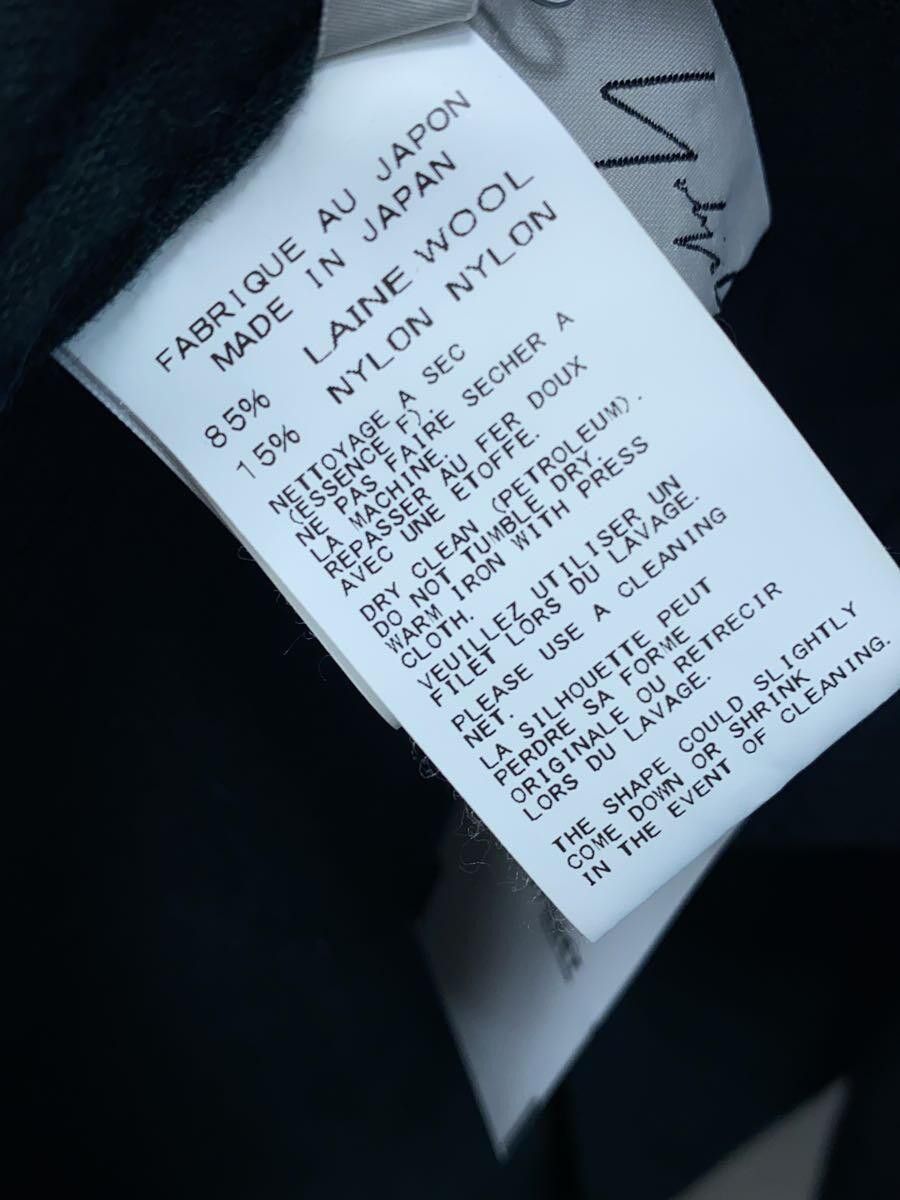 FABRIQUE AU JAPON
MADE IN JAPAN
85% LAINE WOOL
15% NYLON NYLON
NETTOYAGE A SEC
(ESSENCE F).
NE PAS FAIRE SECHER A
LA MACHINE.
REPASSER AU FER DOUX
AVEC UNE ETOFFE.
DRY CLEAN (PETROLEUM).
DO NOT TUMBLE DRY.
WARM IRON WITH PRESS
CLOTH.
VEUILLEZ UTILISER UN
FILET LORS DU LAVAGE.
PLEASE USE A CLEANING
NET.
LA SILHOUETTE PEUT
PERDRE SA FORME
ORIGINALE OU RETRECIR
LORS DU LAVAGE.
THE SHAPE COULD SLIGHTLY
COME DOWN OR SHRINK
IN THE EVENT OF CLEANING.